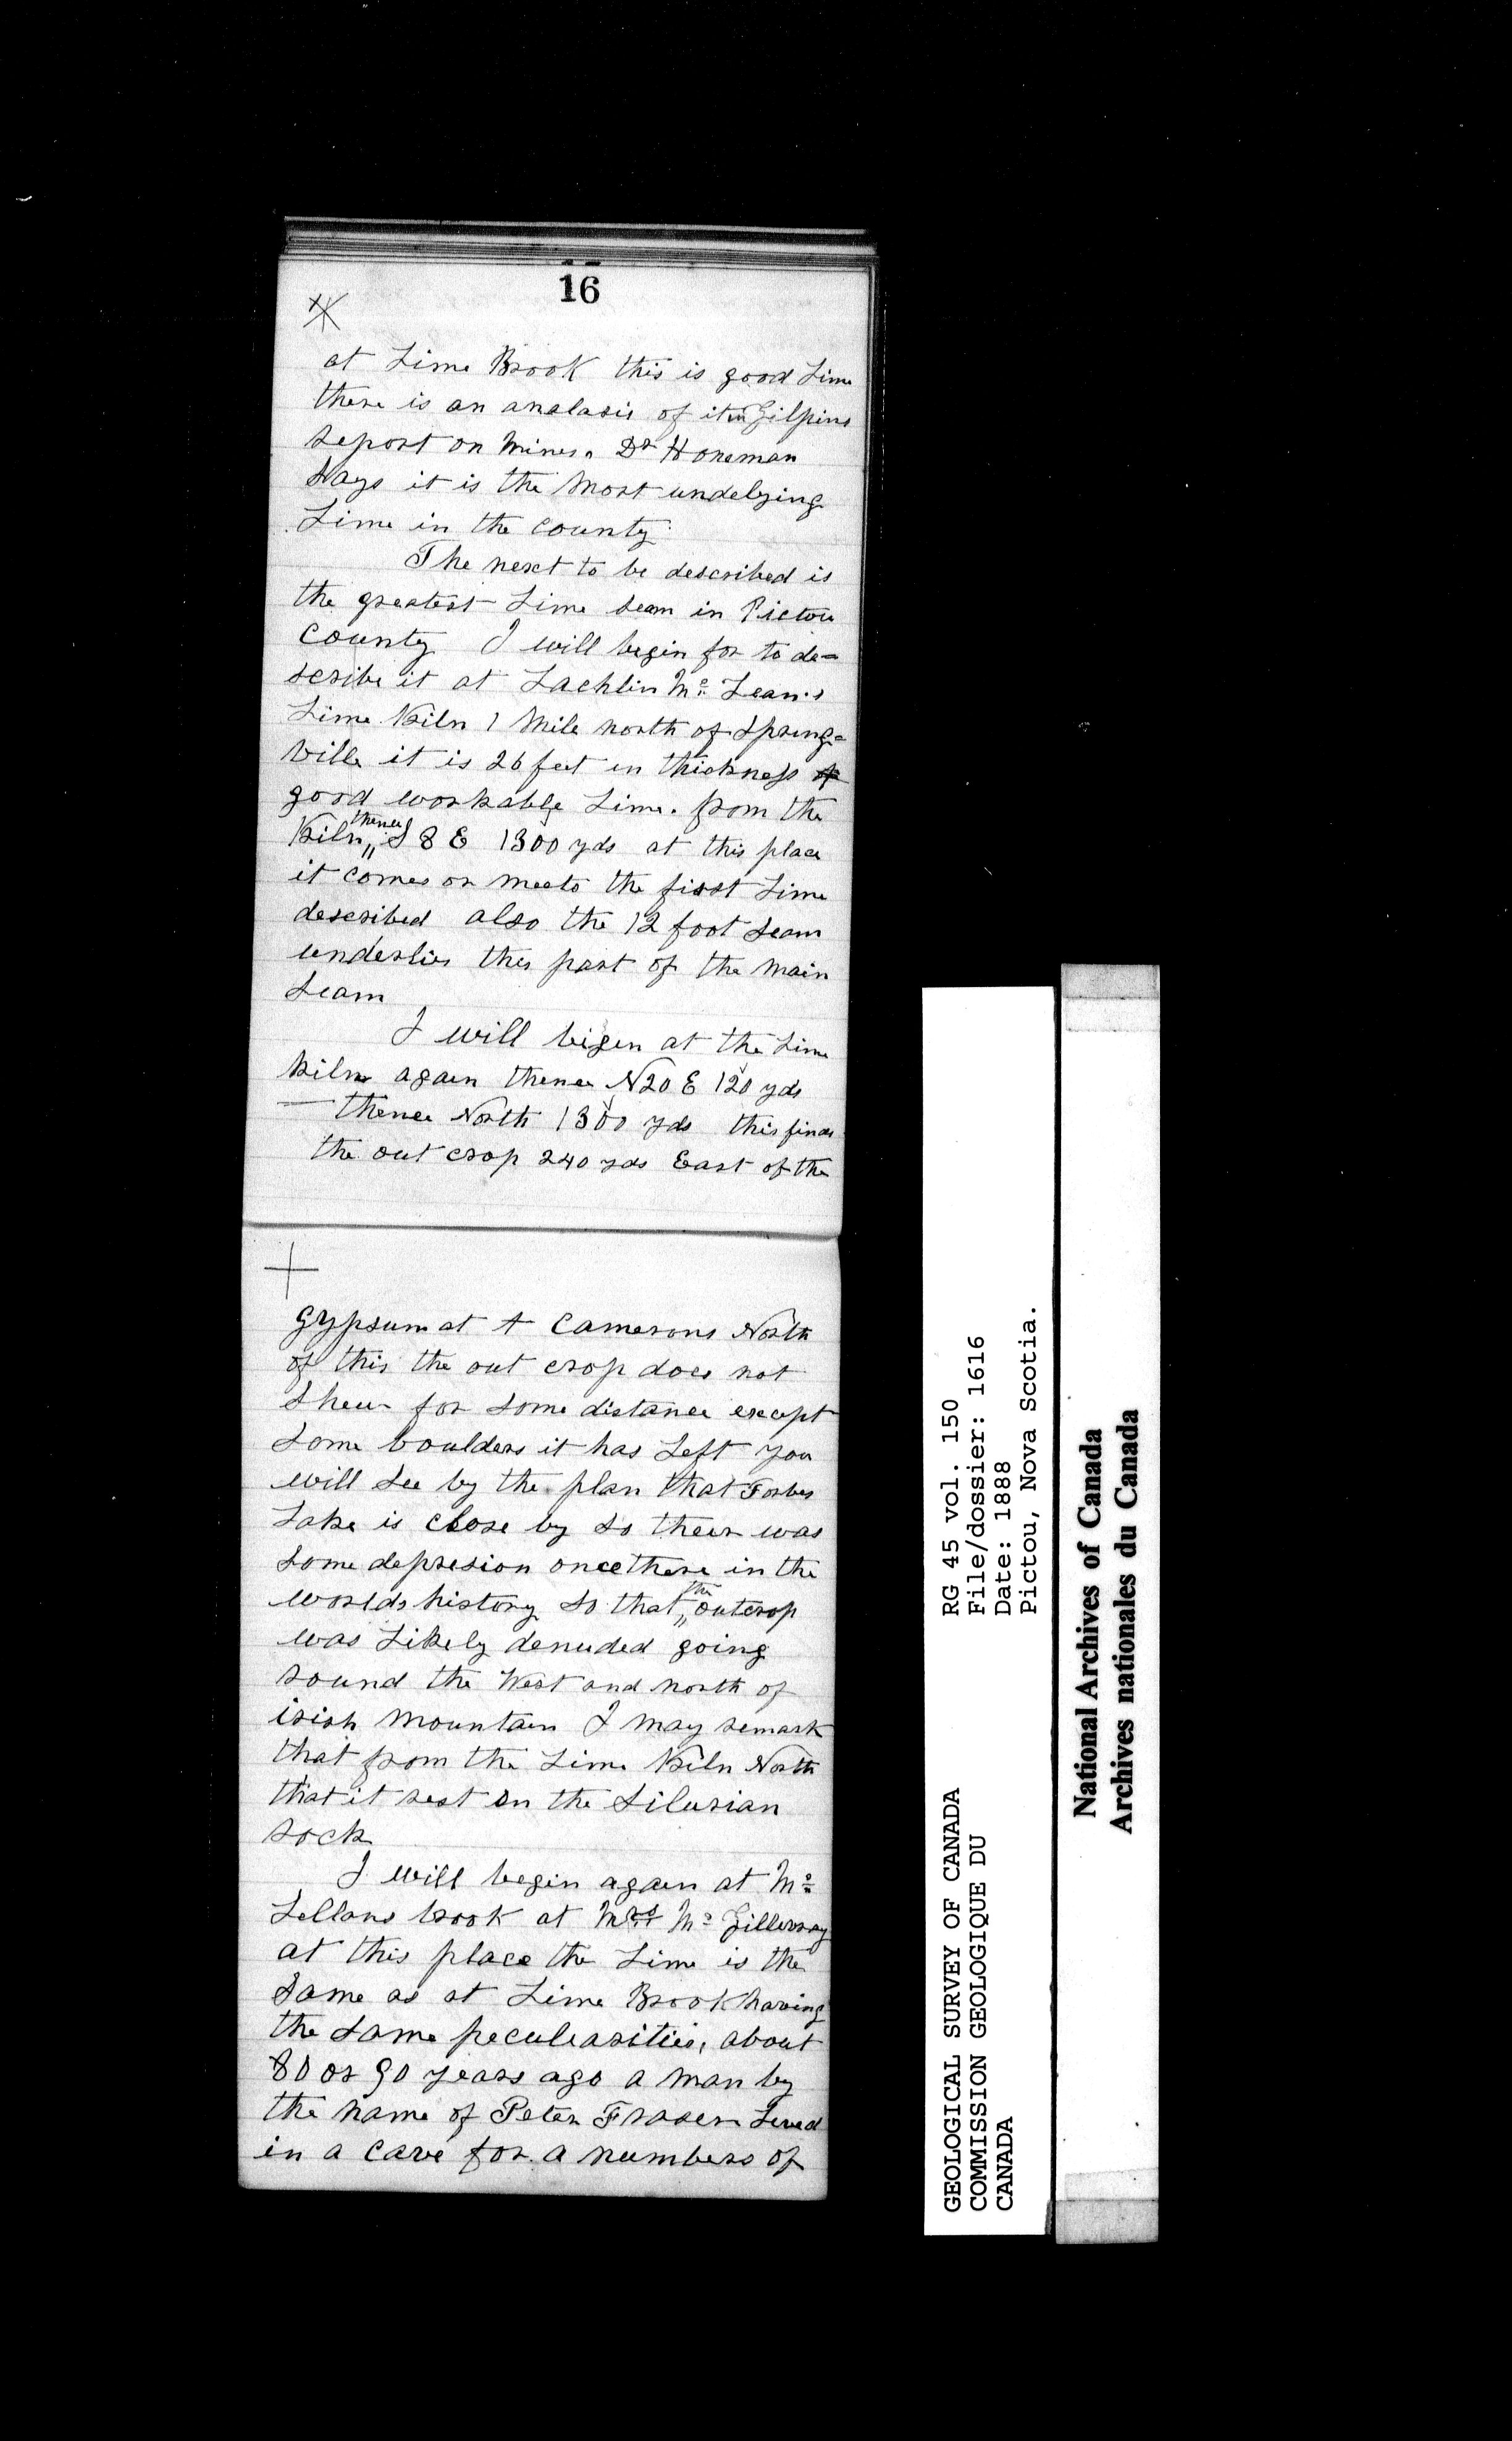 16
at Lime Brook this is good Lime
there is an analasis of it in Gilpins
report on Mines. Dr Honeman
Says it is the Most undelying
Lime in the county
The next to be described is
the greatest Lime seam in Pictou
County I will begin for to de=
scribe it at Lachlin Mc Lean's
Lime Kiln 1 Mile north of Spring=
ville it is 26 feet in thickness
good workable Lime. from the
Kiln thence S 8 E 1300 yds at this place
it comes or meets the first Lime
described also the 12 foot seam
underlies this part of the main
seam
I will bigen at the Lime
kiln again thence N20 E 120 yds
thence North 1300 yds this finds
the out crop 240 yds East of the
gypsum at A Camerons North
of this the out crop does not
shew for some distance except
some boulders it has Left you
will see by the plan that Forbes
Lake is close by so their was
some depresion once there in the
worlds history so that the outcrop
was Likely denuded going
round the West and north of
irish Mountain I may remark
that from the Lime Kiln North
that it rest on the Silurian
rock
I will begin again at Mc
Lellans brook at Mrs Mc Gillivray
at this place the Lime is the
same as at Lime Brook having
the same peculearities, about
80 or 90 years ago a man by
the name of Peter Fraser Lived
in a cave for a numbers of
GEOLOGICAL SURVEY OF CANADA
COMMISSION GEOLOGIQUE DU
CANADA
RG 45 vol. 150
File/dossier: 1616
Date: 1888
Pictou, Nova Scotia.
National Archives of Canada
Archives nationales du Canada